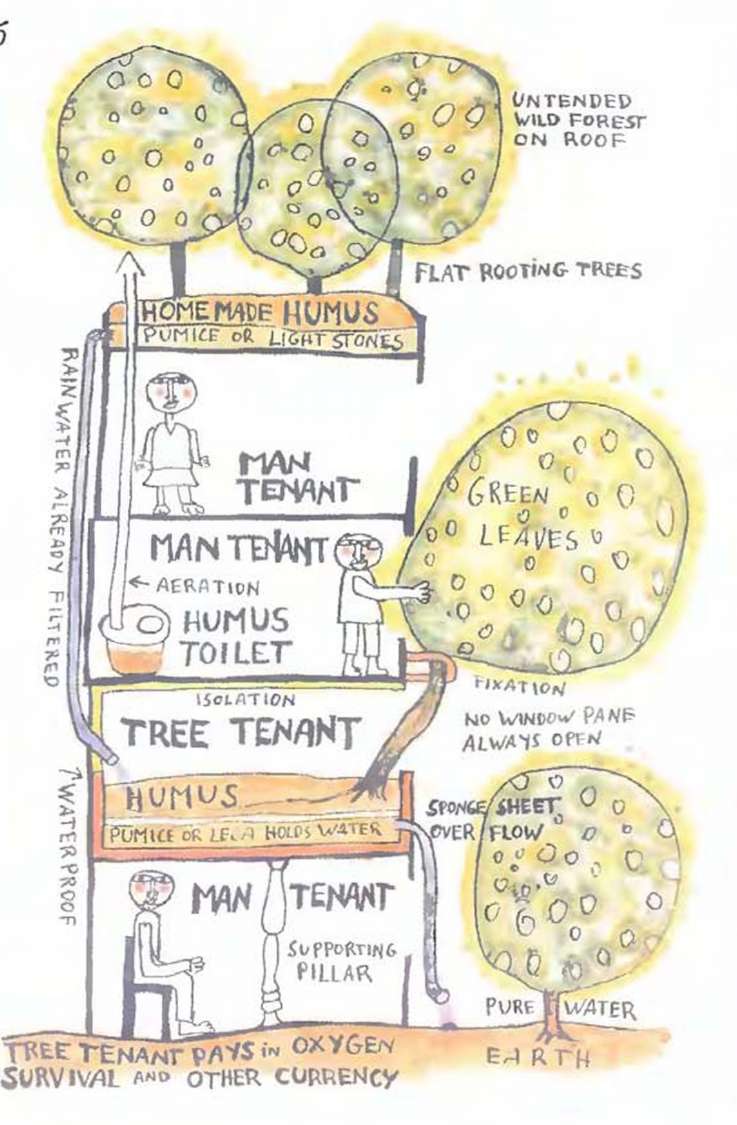 UNTENDED
WILD FOREST
ON ROOF
FLAT ROOTING TREES
HOMEMADE HUMUS
PUMICE OR LIGHT STONES
RAINWATER ALREADY FILTERED
MAN
TENANT
GREEN
LEAVES
MAN TENANT
← AERATION
HUMUS
TOILET
FIXATION
ISOLATION
TREE TENANT
NO WINDOW PANE
ALWAYS OPEN
HUMUS
PUMICE OR LECA HOLDS WATER
SPONGE SHEET
OVER FLOW
↑WATERPROOF
MAN TENANT
SUPPORTING
PILLAR
PURE WATER
EARTH
TREE TENANT PAYS in OXYGEN
SURVIVAL AND OTHER CURRENCY